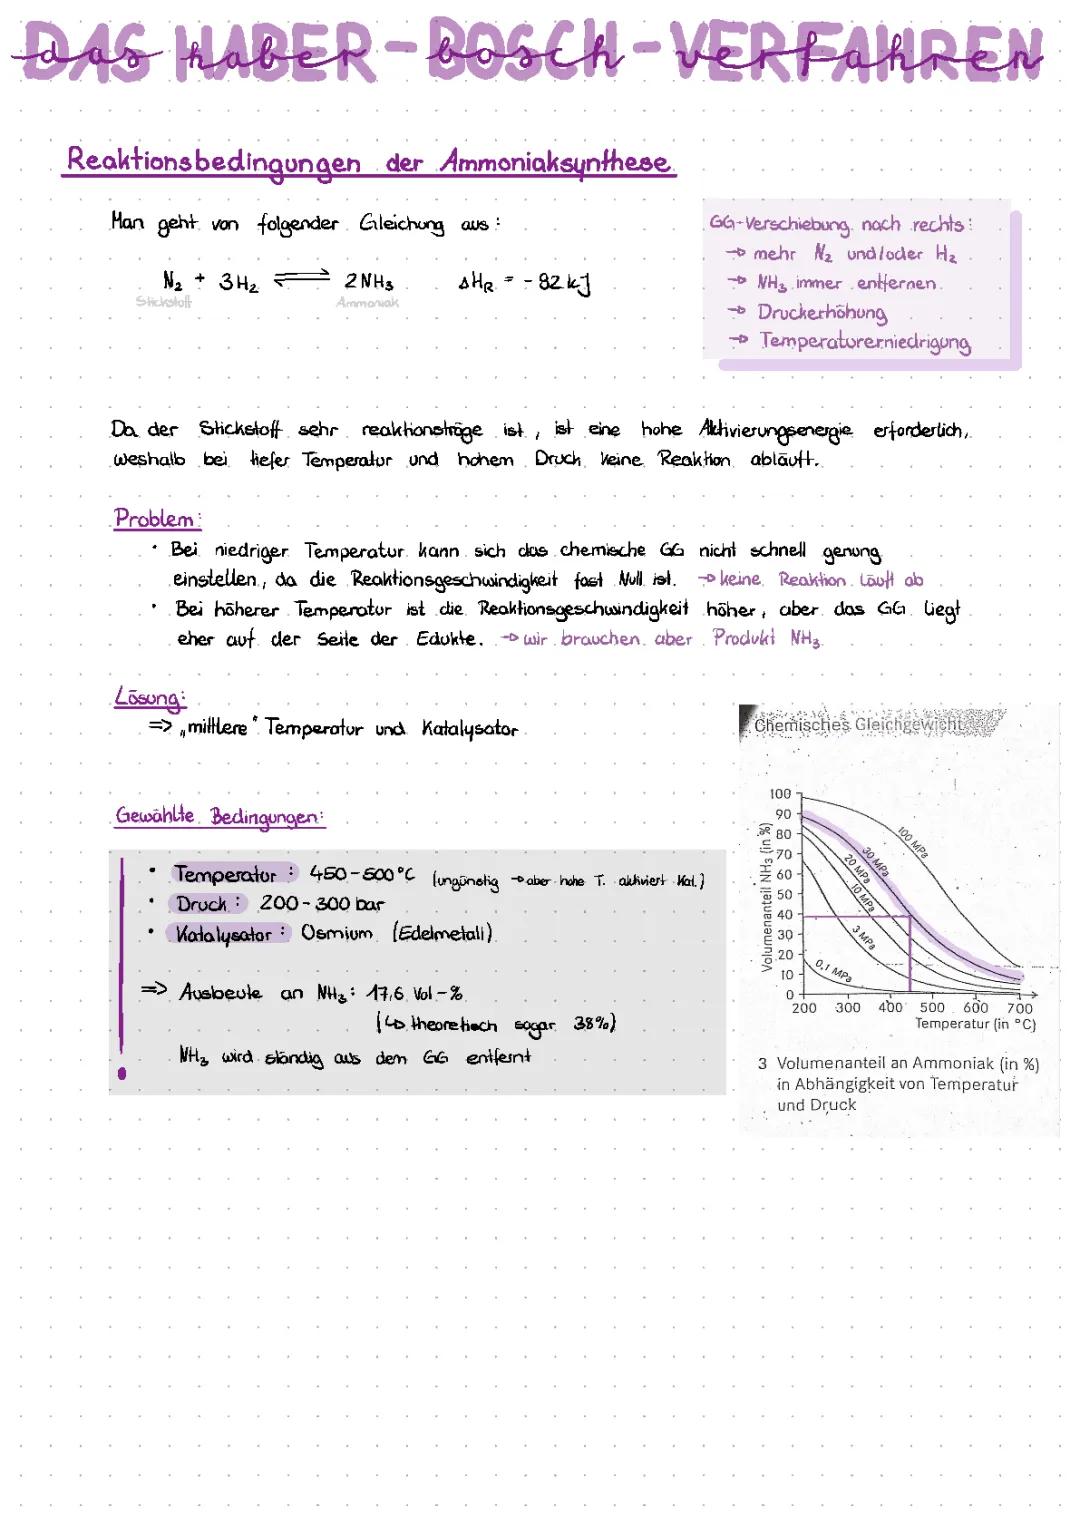 DAS HABER-BOSCH-VERFAHREN
das haber-bosch-verfahren
Reaktionsbedingungen der Ammoniaksynthese
Man geht von folgender Gleichung aus:
N₂ + 3H₂ ⇌ 2NH₃ ΔHR = -92 kJ
Stickstoff Ammoniak
GG-Verschiebung nach rechts:
→ mehr N₂ und/oder H₂
→ NH₃ immer entfernen
→ Druckerhöhung
→ Temperaturerniedrigung
Da der Stickstoff sehr reaktionsträge ist, ist eine hohe Aktivierungsenergie erforderlich,
weshalb bei tiefer Temperatur und hohem Druck keine Reaktion abläuft.
Problem:
• Bei niedriger Temperatur kann sich das chemische GG nicht schnell genung
einstellen, da die Reaktionsgeschwindigkeit fast Null ist. → keine Reaktion läuft ab
• Bei höherer Temperatur ist die Reaktionsgeschwindigkeit höher, aber das GG liegt
eher auf der Seite der Edukte. → wir brauchen aber Produkt NH₃
Lösung:
=> „mittlere" Temperatur und Katalysator
Gewählte Bedingungen:
• Temperatur: 450-500°C (ungünstig → aber hohe T. aktiviert Kat.)
• Druck: 200-300 bar
• Katalysator: Osmium (Edelmetall)
=> Ausbeute an NH₃: 17,6 Vol-%
(↳ theoretisch sogar 38%)
NH₃ wird ständig aus dem GG entfernt
Chemisches Gleichgewicht
Volumenanteil NH₃ (in %)
100
90
80
70
60
50
40
30
20
10
0
100 MPa
30 MPa
20 MPa
10 MPa
3 MPa
0,1 MPa
200 300 400 500 600 700
Temperatur (in °C)
3 Volumenanteil an Ammoniak (in %)
in Abhängigkeit von Temperatur
und Druck